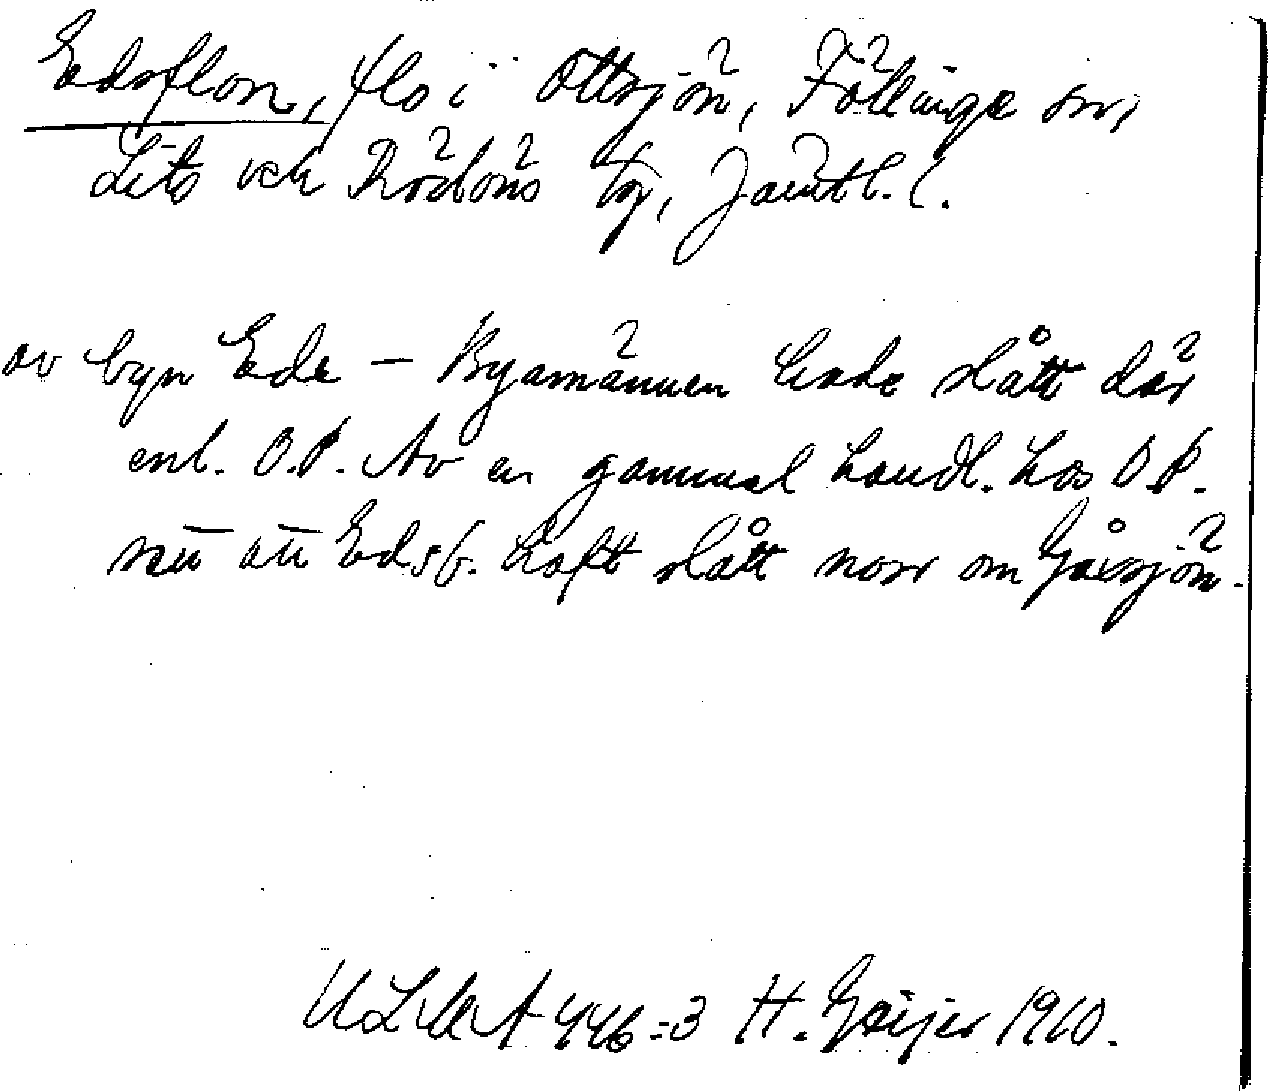 Edsflon, flo i Ottsjön, Föllinge sn,
Lits och Rödöns tg, Jämtl. l.
av byn Ede – Byamännen hade slått där
enl. O.P. Av en gammal handl. hos O.P.
att Edsb. haft slått norr om Gåxsjön.
446:3 H. Geijer 1910.